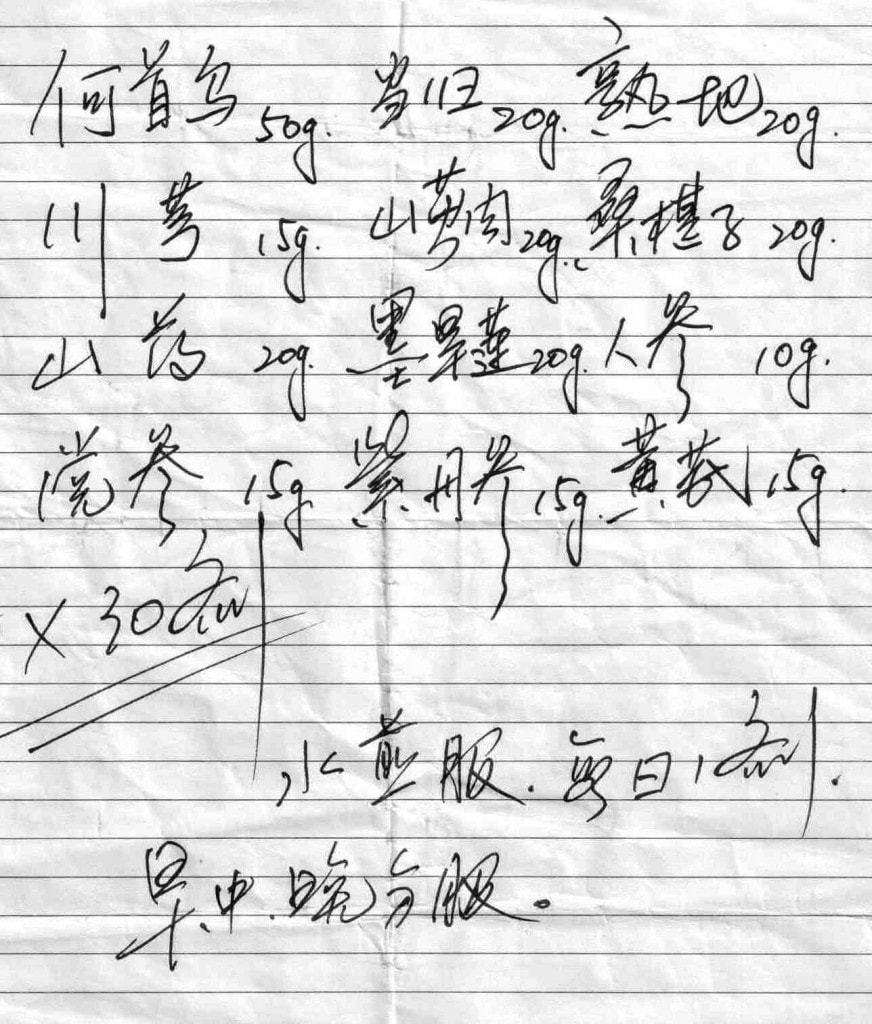 何首乌 50g. 当归 20g. 熟地 20g.
川芎 15g. 山萸肉 20g. 桑椹子 20g.
山药 20g. 黑旱莲 20g. 人参 10g.
党参 15g 紫丹参 15g. 黄芪 15g.
× 30剂
水煎服. 每日1剂.
早.中.晚分服。